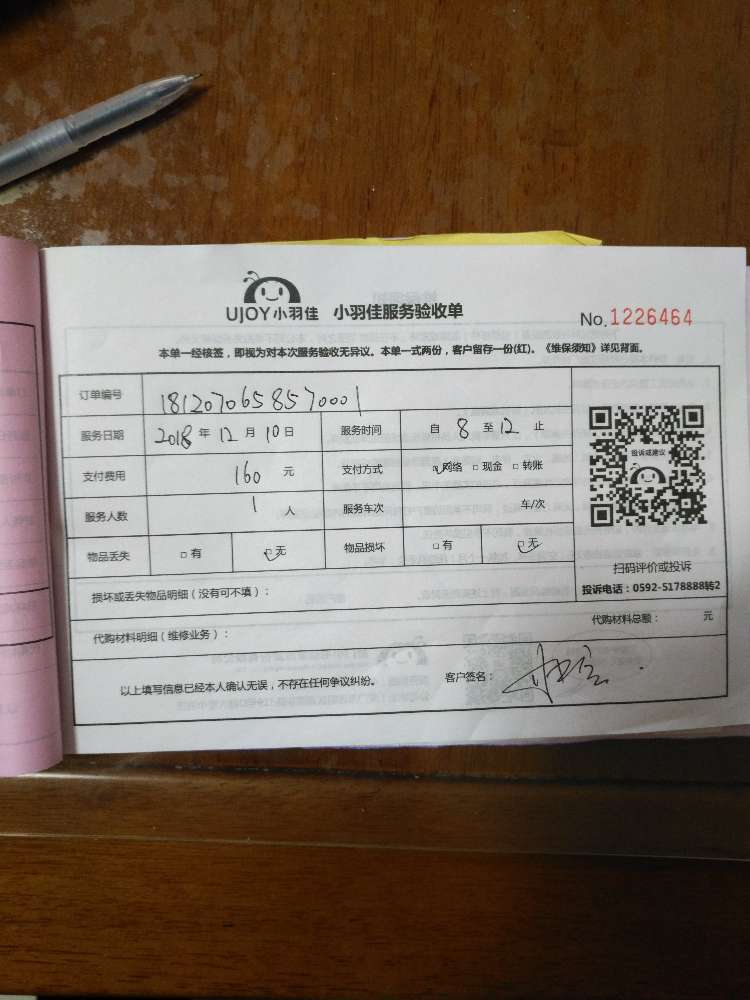 UJOY小羽佳 小羽佳服务验收单
No.1226464
本单一经核签，即视为对本次服务验收无异议。本单一式两份，客户留存一份(红)。《维保须知》详见背面。
订单编号 1812070658570001
服务日期 2018年12月10日 服务时间 自8至12止
支付费用 160元 支付方式 网络 现金 转账
服务人数 1人 服务车次 车/次
物品丢失 有 无 物品损坏 有 无
投诉或建议
扫码评价或投诉
投诉电话：0592-5178888转2
损坏或丢失物品明细（没有可不填）：
代购材料明细（维修业务）： 代购材料总额： 元
以上填写信息已经本人确认无误，不存在任何争议纠纷。 客户签名：